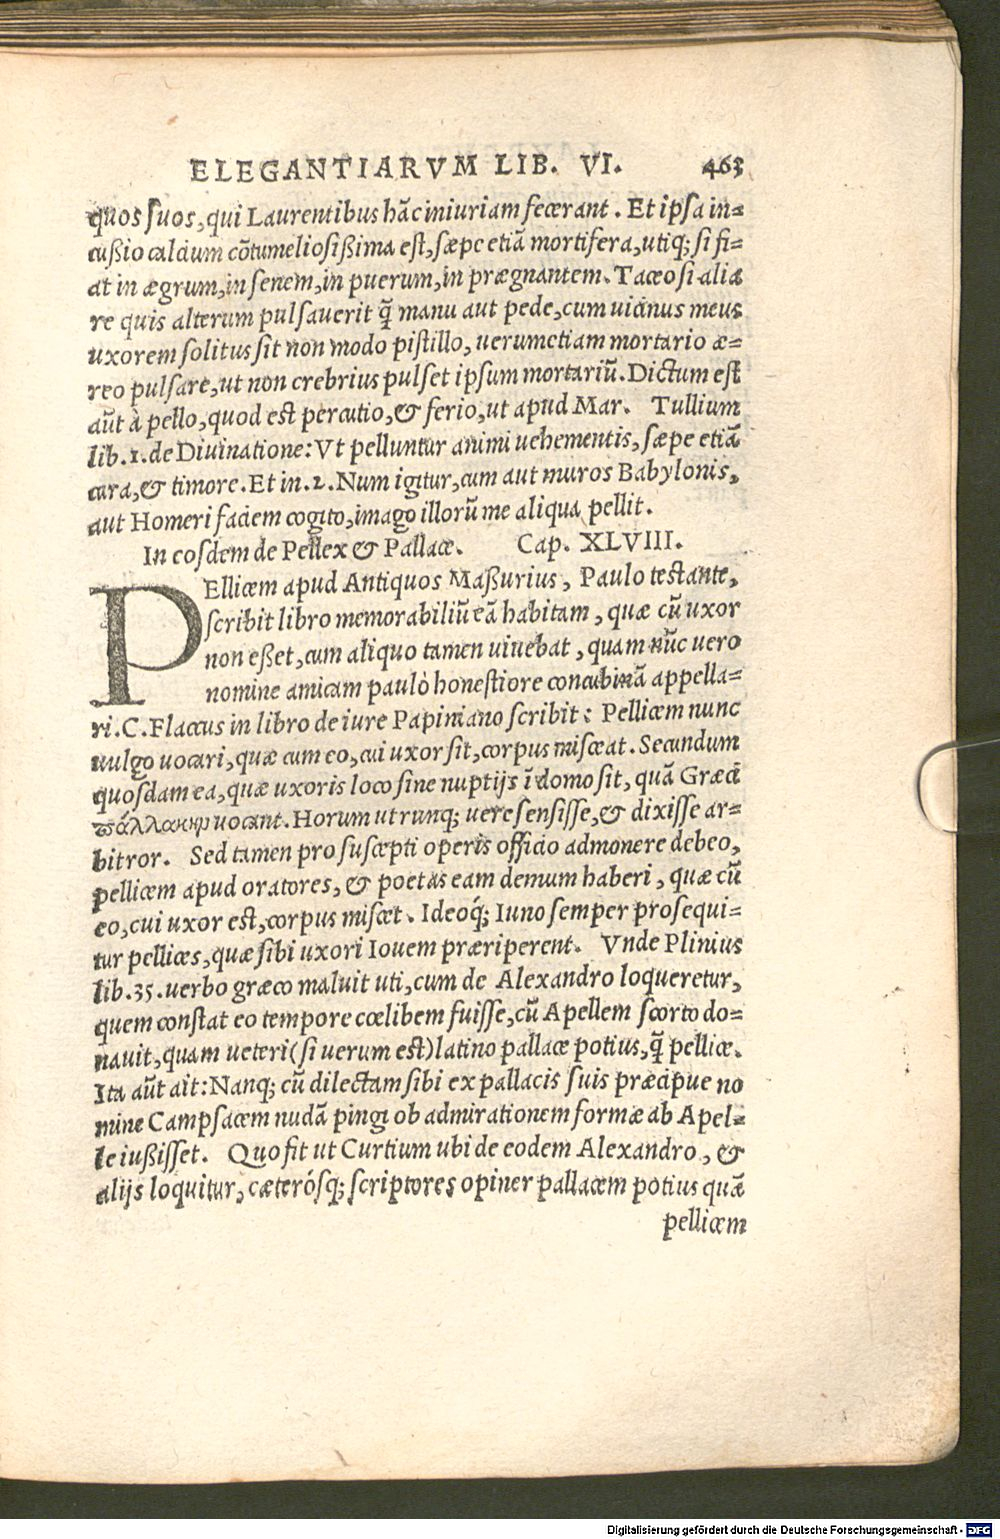 ELEGANTIARVM LIB. VI. 463
quos suos, qui Laurentibus hāc iniuriam fecerant. Et ipsa in-
cußio calcium cōtumeliosißima est, sæpe etiā mortifera, utiq; si fi-
at in ægrum, in senem, in puerum, in prægnantem. Taceo si alia
re quis alterum pulsauerit q̄ manu aut pede, cum uicinus meus
uxorem solitus sit non modo pistillo, uerumetiam mortario æ-
reo pulsare, ut non crebrius pulset ipsum mortariū. Dictum est
aūt à pello, quod est percutio, & ferio, ut apud Mar. Tullium
lib. 1. de Diuinatione: Vt pelluntur animi uehementis, sæpe etiā
cura, & timore. Et in. 2. Num igitur, cum aut muros Babylonis,
aut Homeri faciem cogito, imago illorū me aliqua pellit.
In eosdem de Pellex & Pallace. Cap. XLVIII.
PEllicem apud Antiquos Maßurius, Paulo testante,
scribit libro memorabiliū eā habitam, quæ cū uxor
non eßet, cum aliquo tamen uiuebat, quam nūc uero
nomine amicam paulò honestiore concubinā appella-
ri. C. Flaccus in libro de iure Papiniano scribit: Pellicem nunc
uulgo uocari, quæ cum eo, cui uxor sit, corpus misceat. Secundum
quosdam ea, quæ uxoris loco sine nuptijs ī domo sit, quā Græci
πάλλακην uocant. Horum utrunq; uere sensisse, & dixisse ar-
bitror. Sed tamen pro suscepti operis officio admonere debeo,
pellicem apud oratores, & poetas eam demum haberi, quæ cū
eo, cui uxor est, corpus miscet. Ideoq́; Iuno semper prosequi-
tur pellices, quæ sibi uxori Iouem præriperent. Vnde Plinius
lib. 35. uerbo græco maluit uti, cum de Alexandro loqueretur,
quem constat eo tempore cœlibem fuisse, cū Apellem scorto do-
nauit, quam ueteri (si uerum est) latino pallace potius, q̄ pellice.
Ita aūt ait: Nanq; cū dilectam sibi ex pallacis suis præcipue no
mine Campsacem nudā pingi ob admirationem formæ ab Apel-
le iußisset. Quo fit ut Curtium ubi de eodem Alexandro, &
alijs loquitur, cæterósq; scriptores opiner pallacem potius quā
pellicem
Digitalisierung gefördert durch die Deutsche Forschungsgemeinschaft - DFG